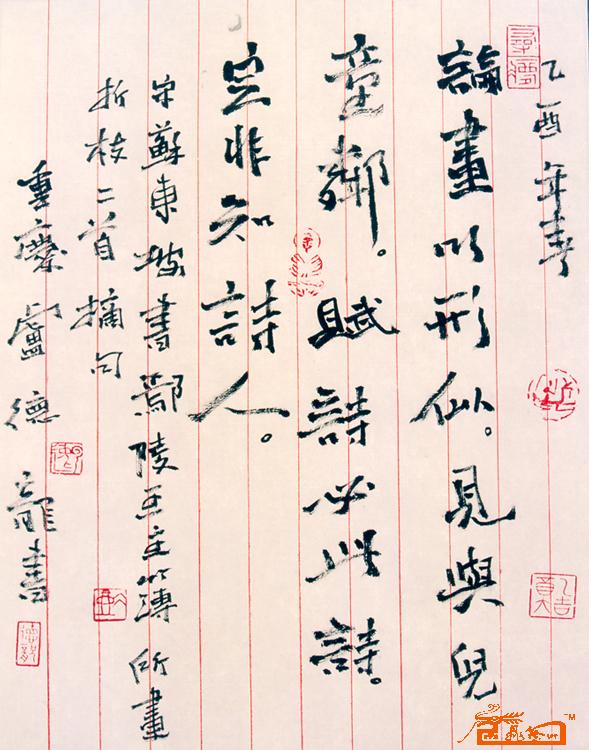 乙酉年春
論畫以形似。見與兒
童鄰。賦詩必此詩。
定非知詩人。
宋蘇東坡書鄢陵王主簿所畫
折枝二首摘句
重慶盧德龍書